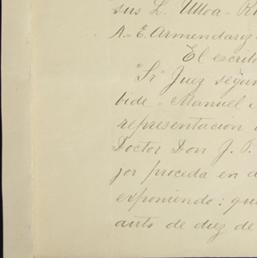 sus L. Ulloa - R
A. E. Armendary
El escrito
"Sr Juez segun
bide - Manuel
representacion
Doctor Don J. P.
jor proceda en d
exponiendo: que
auto de diez de